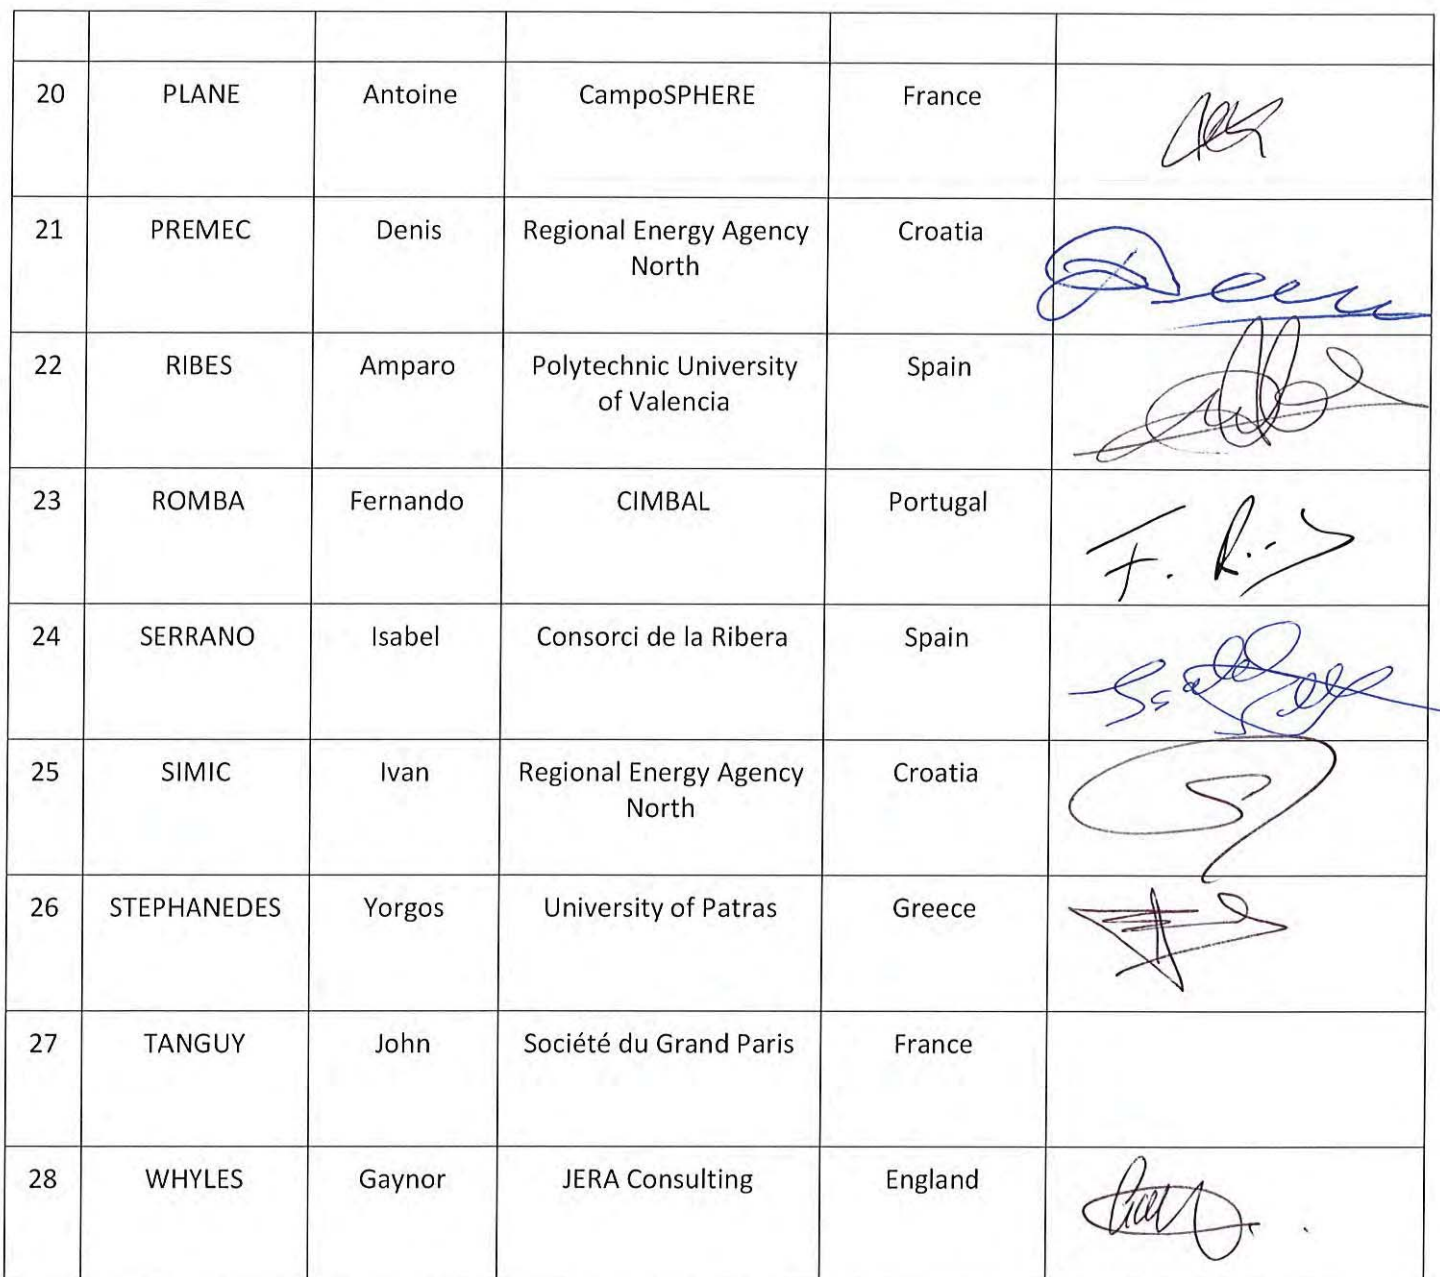 20 PLANE Antoine CampoSPHERE France
21 PREMEC Denis Regional Energy Agency Croatia
North
22 RIBES Amparo Polytechnic University Spain
of Valencia
23 ROMBA Fernando CIMBAL Portugal
F. R
24 SERRANO Isabel Consorci de la Ribera Spain
25 SIMIC Ivan Regional Energy Agency Croatia
North
26 STEPHANEDES Yorgos University of Patras Greece
27 TANGUY John Société du Grand Paris France
28 WHYLES Gaynor JERA Consulting England